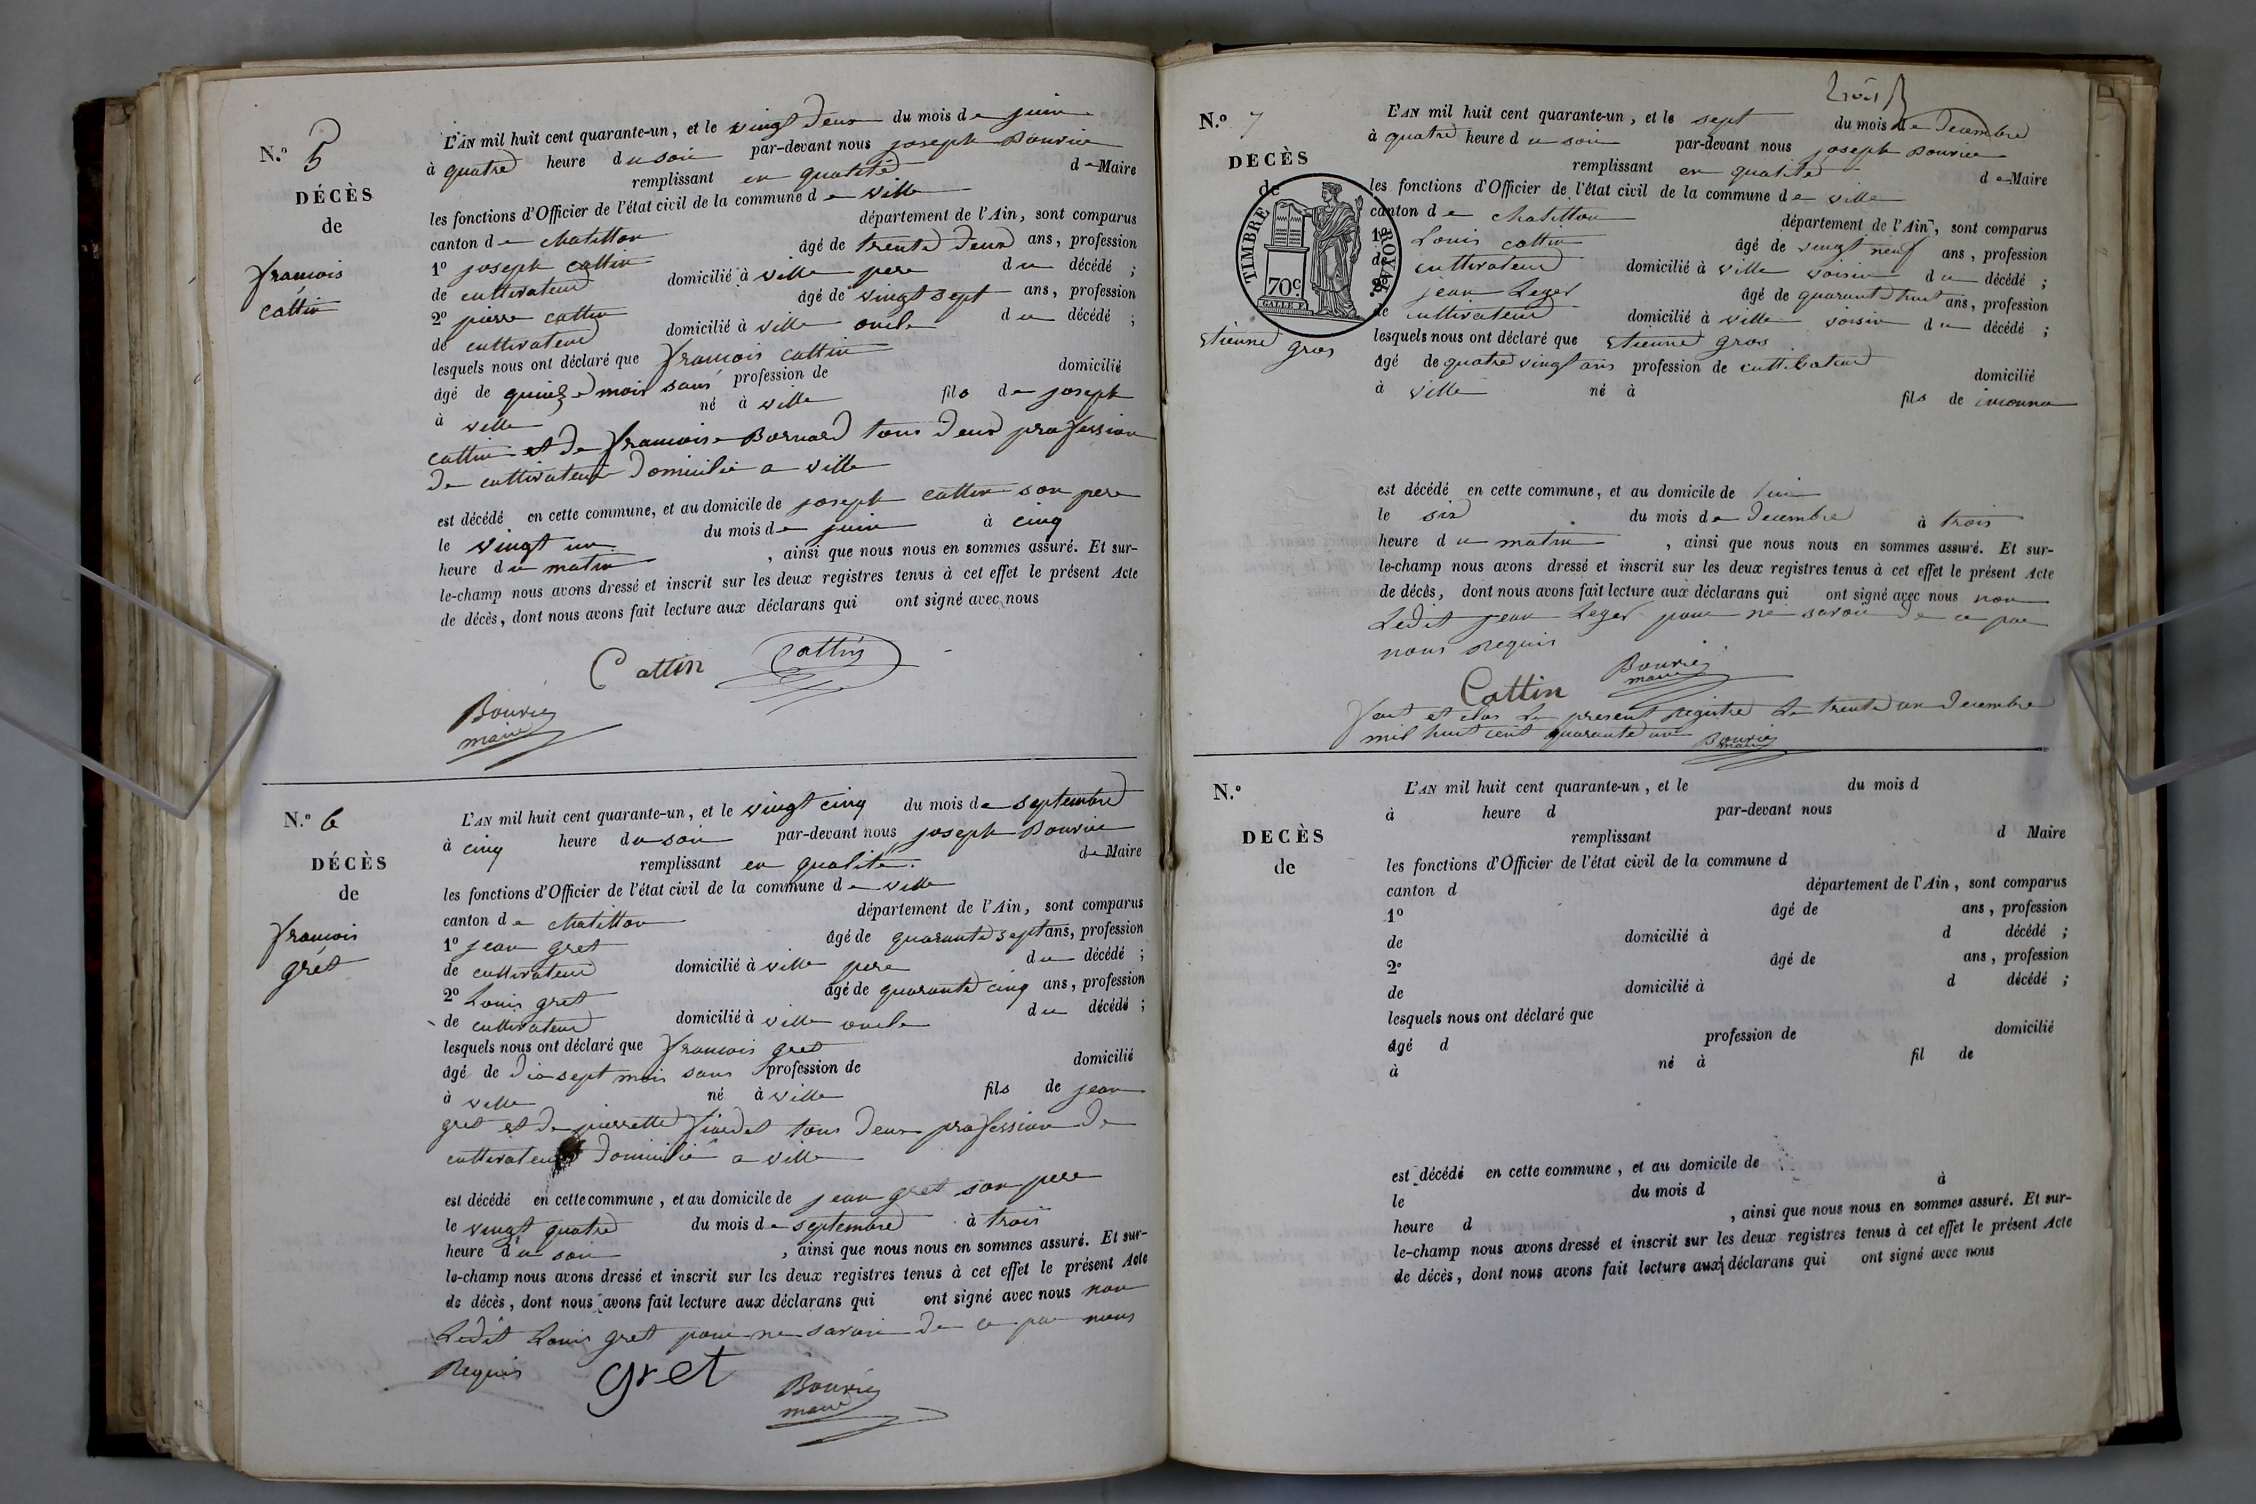 N.º 5
DÉCÈS
de
francois
cattin
L'AN mil huit cent quarante-un, et le vingt deux du mois de juin
à quatre heure du soir par-devant nous joseph Bouvier
remplissant en qualité de Maire
les fonctions d'Officier de l'état civil de la commune de ville
canton de chatillon département de l'Ain, sont comparus
1º joseph cattin âgé de trente deux ans, profession
de cultivateur domicilié à ville pere du décédé ;
2º pierre cattin âgé de vingt sept ans, profession
de cultivateur domicilié à ville oncle du décédé ;
lesquels nous ont déclaré que francois cattin
âgé de quinze mois sans profession de domicilié
à ville né à ville fils de joseph
cattin et de francoise Bornard tous deux profession
de cultivateur domicilié a ville
est décédé en cette commune, et au domicile de joseph cattin son pere
le vingt un du mois de juin à cinq
heure du matin , ainsi que nous nous en sommes assuré. Et sur-
le-champ nous avons dressé et inscrit sur les deux registres tenus à cet effet le présent Acte
de décès, dont nous avons fait lecture aux déclarans qui ont signé avec nous
Cattin Cattin
Bouvier
maire
N.º 6
DÉCÈS
de
francois
grét
L'AN mil huit cent quarante-un, et le vingt cinq du mois de septembre
à cinq heure du soir par-devant nous joseph Bouvier
remplissant en qualité de Maire
les fonctions d'Officier de l'état civil de la commune de ville
canton de chatillon département de l'Ain, sont comparus
1º jean gret âgé de quarante sept ans, profession
de cultivateur domicilié à ville pere du décédé ;
2º Louis gret âgé de quarante cinq ans, profession
de cultivateur domicilié à ville oncle du décédé ;
lesquels nous ont déclaré que francois gret
âgé de dix sept mois sans profession de domicilié
à ville né à ville fils de jean
gret et de pierrette tous deux profession de
cultivateur domicilié a ville
est décédé en cette commune, et au domicile de jean gret son pere
le vingt quatre du mois de septembre à trois
heure du soir , ainsi que nous nous en sommes assuré. Et sur-
le-champ nous avons dressé et inscrit sur les deux registres tenus à cet effet le présent Acte
de décès, dont nous avons fait lecture aux déclarans qui ont signé avec nous non
Ledit Louis gret pour ne savoir de ce par nous
Requis gret Bouvier
maire
N.º 7
DECÈS
de
TIMBRE ROYAL
70 C.
Etienne
gros
L'AN mil huit cent quarante-un, et le sept du mois de decembre
à quatre heure du soir par-devant nous joseph Bouvier
remplissant en qualité de Maire
les fonctions d'Officier de l'état civil de la commune de ville
canton de chatillon département de l'Ain, sont comparus
1º Louis cattin âgé de vingt neuf ans, profession
de cultivateur domicilié à ville voisin du décédé ;
jean Leger âgé de quarante huit ans, profession
de cultivateur domicilié à ville voisin du décédé ;
lesquels nous ont déclaré que Etienne gros
âgé de quatre vingt ans profession de cultivateur domicilié
à ville né à fils de inconnu
est décédé en cette commune, et au domicile de lui
le six du mois de decembre à trois
heure du matin , ainsi que nous nous en sommes assuré. Et sur-
le-champ nous avons dressé et inscrit sur les deux registres tenus à cet effet le présent Acte
de décès, dont nous avons fait lecture aux déclarans qui ont signé avec nous non
Ledit jean Leger pour ne savoir de ce par
nous requis
Cattin Bouvier
maire
et clos Le present registre Le trente un decembre
mil huit cent quarante un Bouvier
maire
N.º
DECÈS
de
L'AN mil huit cent quarante-un, et le du mois d
à heure d par-devant nous
remplissant d Maire
les fonctions d'Officier de l'état civil de la commune d
canton d département de l'Ain, sont comparus
1º âgé de ans, profession
de domicilié à d décédé ;
2º âgé de ans, profession
de domicilié à d décédé ;
lesquels nous ont déclaré que
âgé d profession de domicilié
à né à fil de
est décédé en cette commune, et au domicile de
le du mois d à
heure d , ainsi que nous nous en sommes assuré. Et sur-
le-champ nous avons dressé et inscrit sur les deux registres tenus à cet effet le présent Acte
de décès, dont nous avons fait lecture aux déclarans qui ont signé avec nous